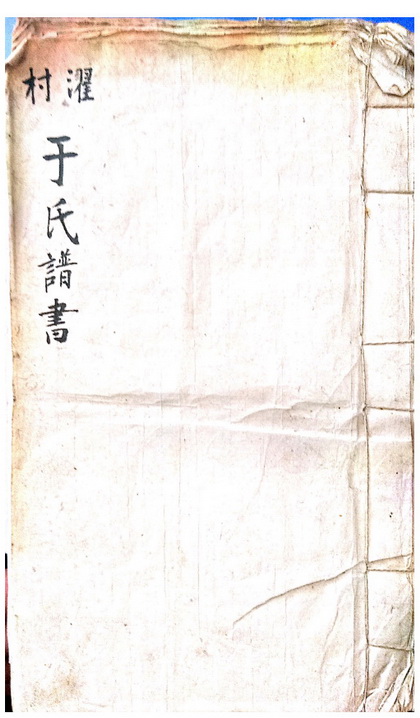 濯村
于氏譜書